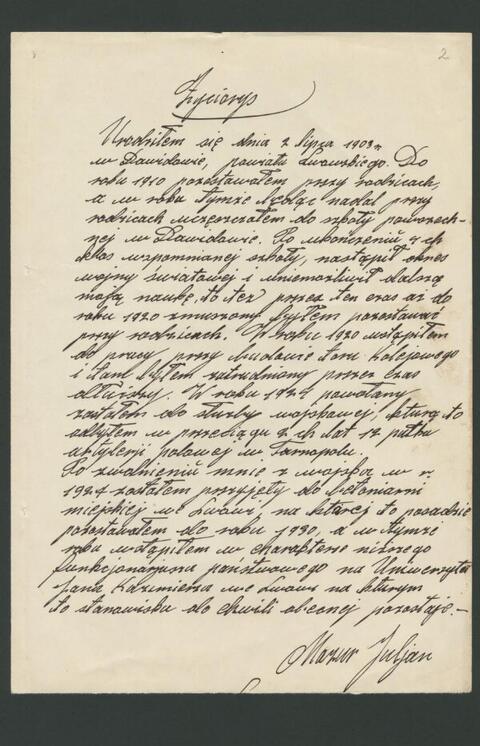 2
Życiorys
Urodziłem się dnia 2 lipca 1903 r.
w Dawidowie, powiatu Lwowskiego. Do
roku 1910 pozostawałem przy rodzicach,
a w roku tymże będąc nadal przy
rodzicach uczęszczałem do szkoły powszech-
nej w Dawidowie. Po ukończeniu 4 ch
klas wspomnianej szkoły, nastąpił okres
wojny światowej i uniemożliwił dalszą
moją naukę, to też przez ten czas aż do
roku 1920 zmuszony byłem pozostawać
przy rodzicach. W roku 1920 wstąpiłem
do pracy przy budowie toru kolejowego
i tam byłem zatrudniony przez czas
dłuższy. W roku powołany
zostałem do służby wojskowej, którą to
odbyłem w przeciągu 2 ch lat 12 pułku
artylerji polowej w Tarnopolu.
Po zwolnieniu mnie z wojska w r.
1927 zostałem przyjęty do betoniarni
miejskiej we Lwowi, na której to posadzie
pozostawałem do roku 1930, a w tymże
roku wstąpiłem w charakterze niższego
funkcjonarjusza państwowego na Uniwersytet
Jana Kazimierza we Lwowi na którym
to stanowisku do chwili obecnej pozostaję.—
Mazur Juljan